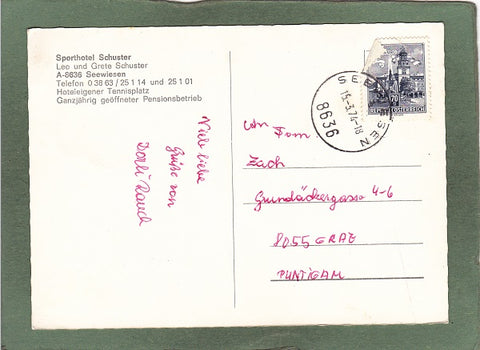 Sporthotel Schuster
Leo und Grete Schuster
A-8636 Seewiesen
Telefon 0 38 63 / 25 1 14 und 25 1 01
Hoteleigener Tennisplatz
Ganzjährig geöffneter Pensionsbetrieb
Viele liebe
Grüße von
Dorli Rauch
SEEWIESEN
15.-3.74-18
8636
REPUBLIK ÖSTERREICH
An Fam.
Zach
Grundäckergasse 4-6
8055 GRAZ
PUNTIGAM